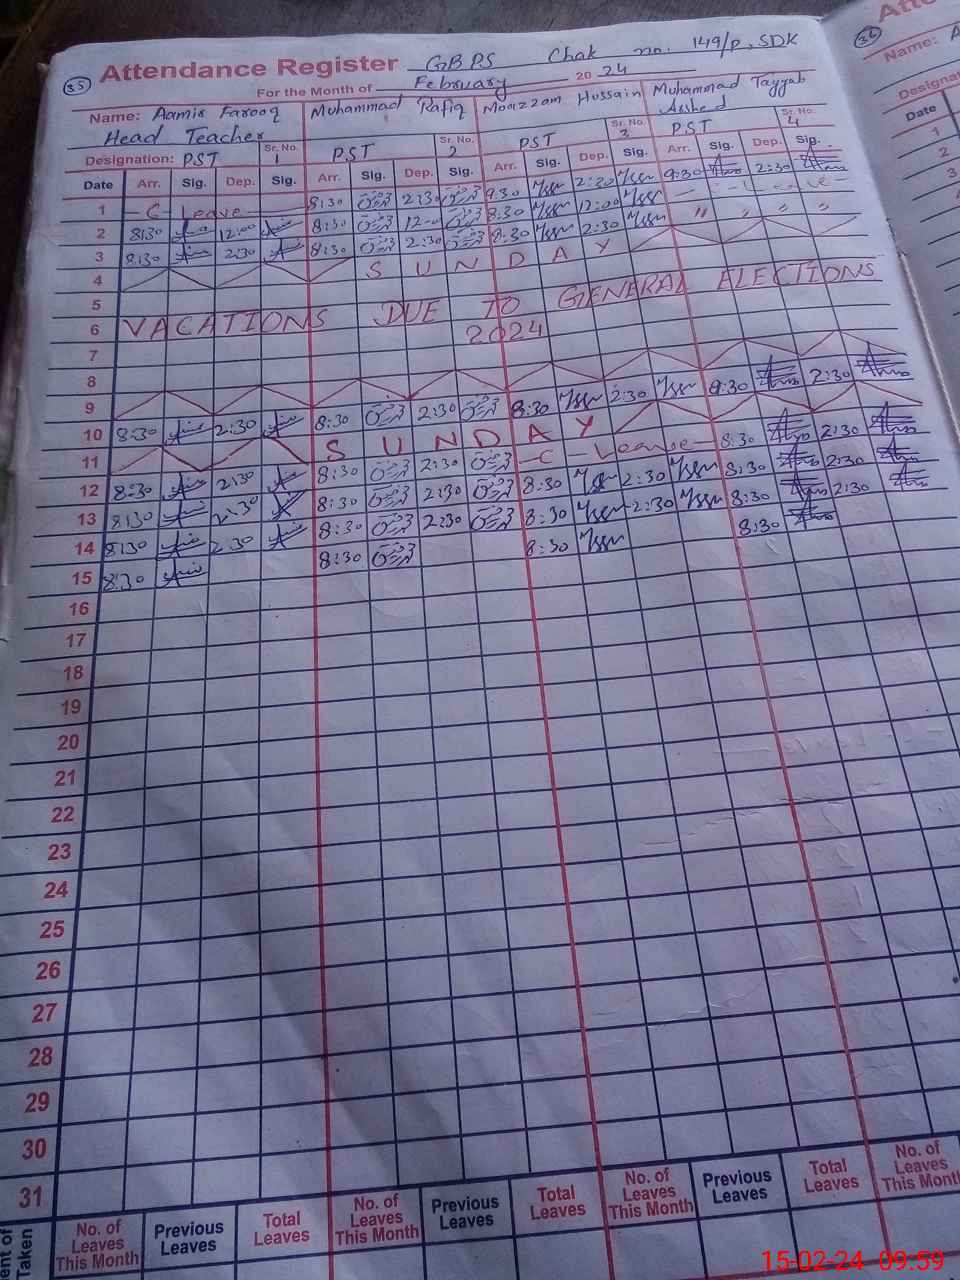 35 Attendance Register GBPS Chak no. 149/P, SDK
For the Month of February 2024
Name: Aamir Farooq Muhammad Rafiq Moazzam Hussain Muhammad Tayyab Arshad
Head Teacher
Designation: PST Sr. No. 1 PST Sr. No. 2 PST Sr. No. 3 PST Sr. No. 4
Date Arr. Sig. Dep. Sig. Arr. Sig. Dep. Sig. Arr. Sig. Dep. Sig. Arr. Sig. Dep. Sig.
1 - C - Leave - 8:30 2:30 9:30 2:30 9:30 2:30
2 8:30 12:00 8:30 12:00 8:30 12:00 - Leave -
3 8:30 2:30 8:30 2:30 8:30 2:30 " " " "
4 SUNDAY
5 VACATIONS DUE TO GENERAL ELECTIONS
6 2024
7
8
9 8:30 2:30 8:30 2:30 9:30 2:30
10 8:30 2:30 SUNDAY
11 8:30 2:30 - C - Leave - 8:30 2:30
12 8:30 2:30 8:30 2:30 8:30 2:30 8:30 2:30
13 8:30 2:30 8:30 2:30 8:30 2:30 8:30 2:30
14 8:30 2:30 8:30 8:30 8:30
15 8:30
16
17
18
19
20
21
22
23
24
25
26
27
28
29
30
31
No. of Leaves This Month Previous Leaves Total Leaves No. of Leaves This Month Previous Leaves Total Leaves No. of Leaves This Month Previous Leaves Total Leaves No. of Leaves This Month
Taken
36
Name:
Date
1
2
3
4
15-02-24 09:59